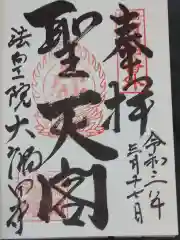 奉拝
令和三年
三月十七日
聖天閣
法皇院大福田寺